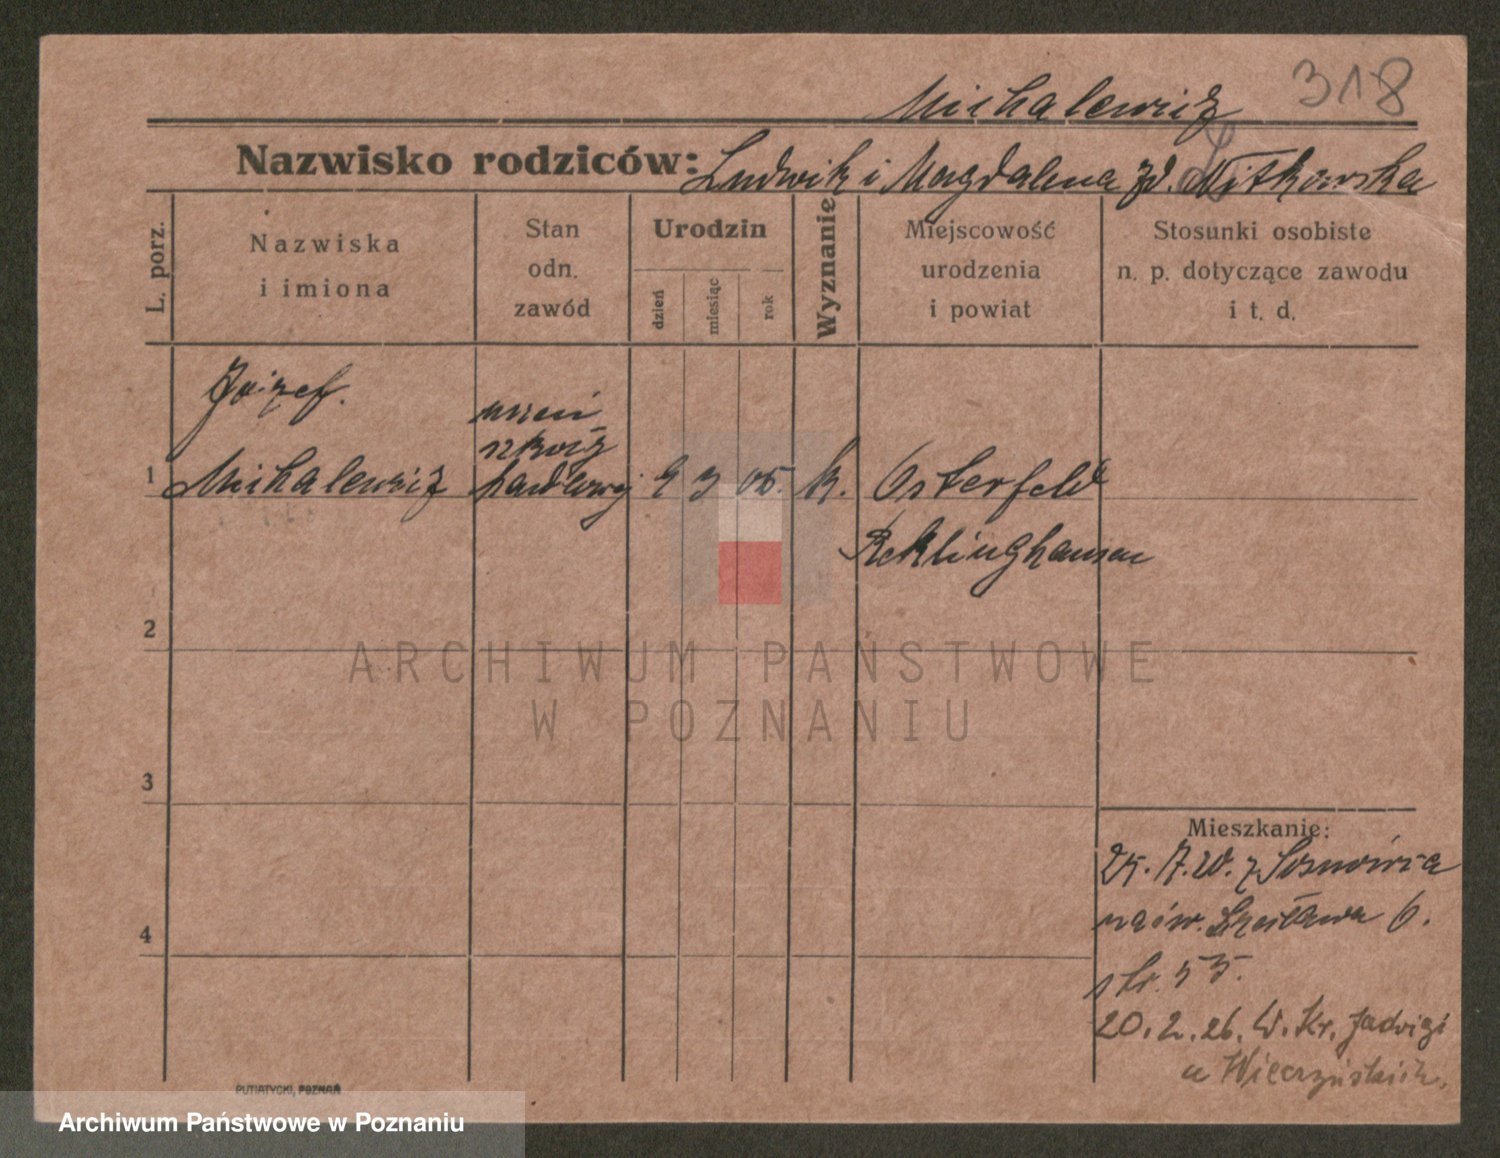 318
Michalewicz
Nazwisko rodziców: Ludwik i Magdalena zd. Witkowska
L. porz.
Nazwiska
i imiona
Stan
odn.
zawód
Urodzin
dzień
miesiąc
rok
Wyznanie
Miejscowość
urodzenia
i powiat
Stosunki osobiste
n. p. dotyczące zawodu
i t. d.
Józef.
uczeń
szkoły
1 Michalewicz handlowej 9 3 05. k. Osterfeld
Reklinghausen
2
ARCHIWUM PAŃSTWOWE
W POZNANIU
3
Mieszkanie:
z Sosnowca
4
6.
str. 55.
20.2.26. W. Kr. Jadwigi
u
PUTIATYCKI, POZNAŃ
Archiwum Państwowe w Poznaniu